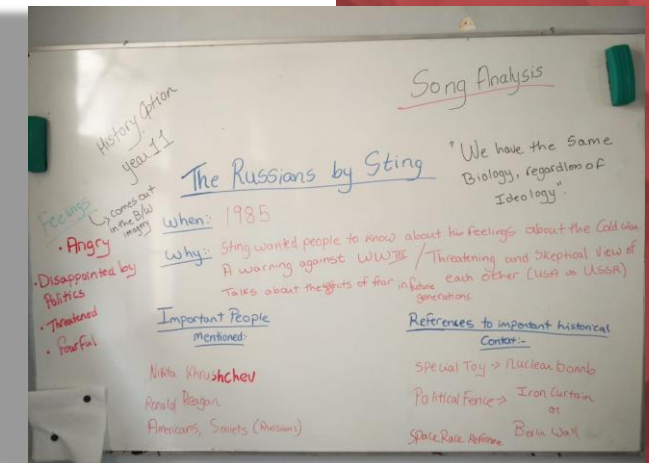 Song Analysis
History Option
year 11
The Russians by Sting
"We have the Same
Biology, regardless of
Ideology".
Feelings
comes out
in the B/W
imagery
• Angry
• Disappointed by
Politics
• Threatened
• Fearful
When:- 1985
Why:- Sting wanted people to know about his feelings about the Cold War
A warning against WWIII / Threatening and Skeptical View of
each other (USA vs USSA)
Talks about the effects of fear in future
generations
Important People
mentioned:-
Nikita Khrushchev
Ronald Reagan
Americans, Soviets (Russians)
References to important historical
Context:-
Special Toy → Nuclear bomb
Political Fence → Iron Curtain
or
Berlin Wall
Space Race Reference